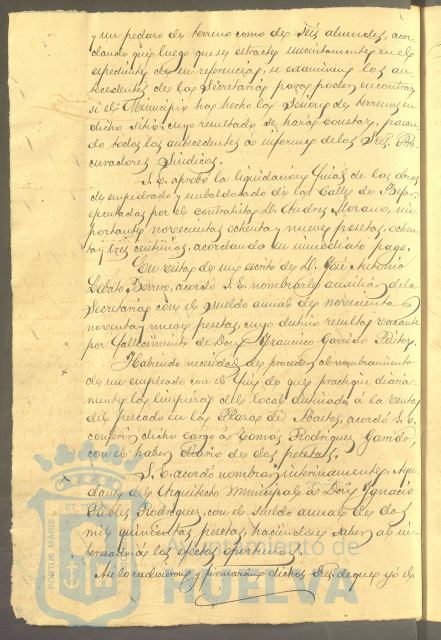 y un pedazo de terreno como de seis almudes, acor
dando que luego que se extracte sucintamente en el
expediente de su referencia, se examinen los an
tecedentes de la Secretaría para poder encontrar
si el Municipio ha hecho la cesion de terrenos en
dicho sitio; cuyo resultado se hará constar, pasan
do todos los antecedentes á informe de los Sres. Pro
curadores Síndicos.
S. E. aprobó la liquidacion final de las obras
de empedrado y embaldosado de la Calle de
ejecutadas por el contratista D. Andres Morano, im
portante novecientas ochenta y nueve pesetas, ochen
ta y tres centimos, acordando su inmediato pago.
En vista de un escrito de D. José Antonio
Borrero, acordó S. E. nombrarle auxiliar de la
Secretaría con el sueldo anual de novecientas
noventa y nueve pesetas, cuyo destino resulta vacante
por fallecimiento de Don Francisco Garrido
Habiendo necesidad de proceder al nombramiento
de un empleado con el fin de que practique diaria
mente la limpieza del local destinado á la venta
del pescado en la Plaza de Abastos, acordó S. E.
conferir dicho cargo á Tomas Rodriguez Garrido,
con el haber diario de dos pesetas.
S. E. acordó nombrar interinamente, Ayu
dante del Arquitecto Municipal á Don Ignacio
Robles Rodriguez, con el sueldo anual de dos
mil quinientas pesetas, haciendose saber al in
teresado á los efectos oportunos.
Así lo resolvieron y firmaron dichos Sres. de que yo el
PORTUS MARIS
ET TE
Ayuntamiento de
HUELVA